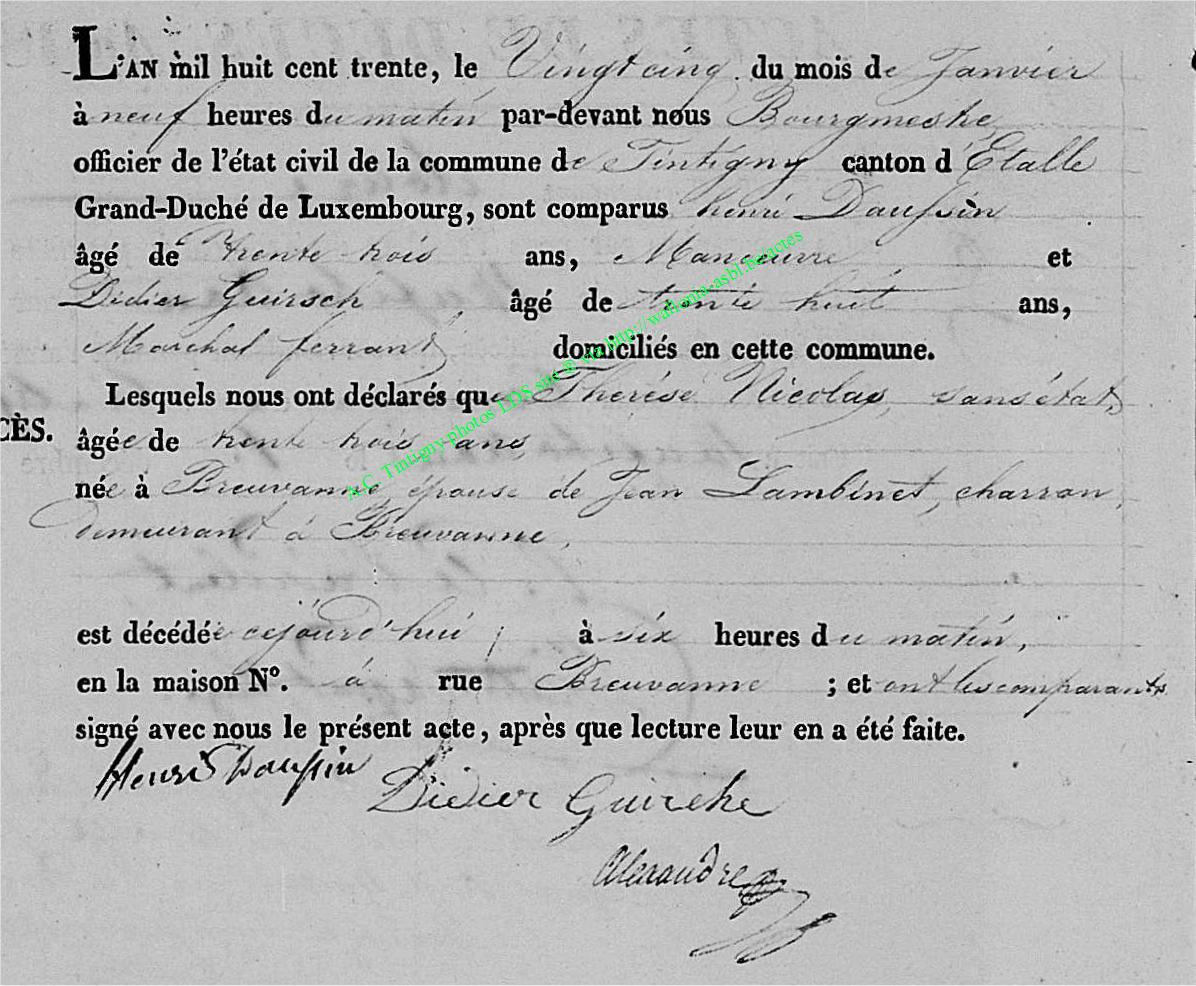 L'AN mil huit cent trente, le Vingt cinq du mois de Janvier
à neuf heures du matin par-devant nous Bourgmestre
officier de l'état civil de la commune de Tintigny canton d'Etalle
Grand-Duché de Luxembourg, sont comparus henri Daussin
âgé de trente trois ans, Manoeuvre et
Didier Guirsch âgé de trente huit ans,
Marchal ferrant domiciliés en cette commune.
Lesquels nous ont déclarés que Thérése Nicolas, sans état,
CÈS. âgée de trente trois ans,
née à Breuvanne, épouse de Jean Lambinet, charron,
demeurant à Breuvanne,
est décédée cejourd'hui à six heures du matin,
en la maison N°. à rue Breuvanne ; et ont les comparants
signé avec nous le présent acte, après que lecture leur en a été faite.
Henri Daussin
Didier Guirche
Alexandre
A.C. Tintigny photos LDS sur @ via http://wallonia-asbl.be/actes